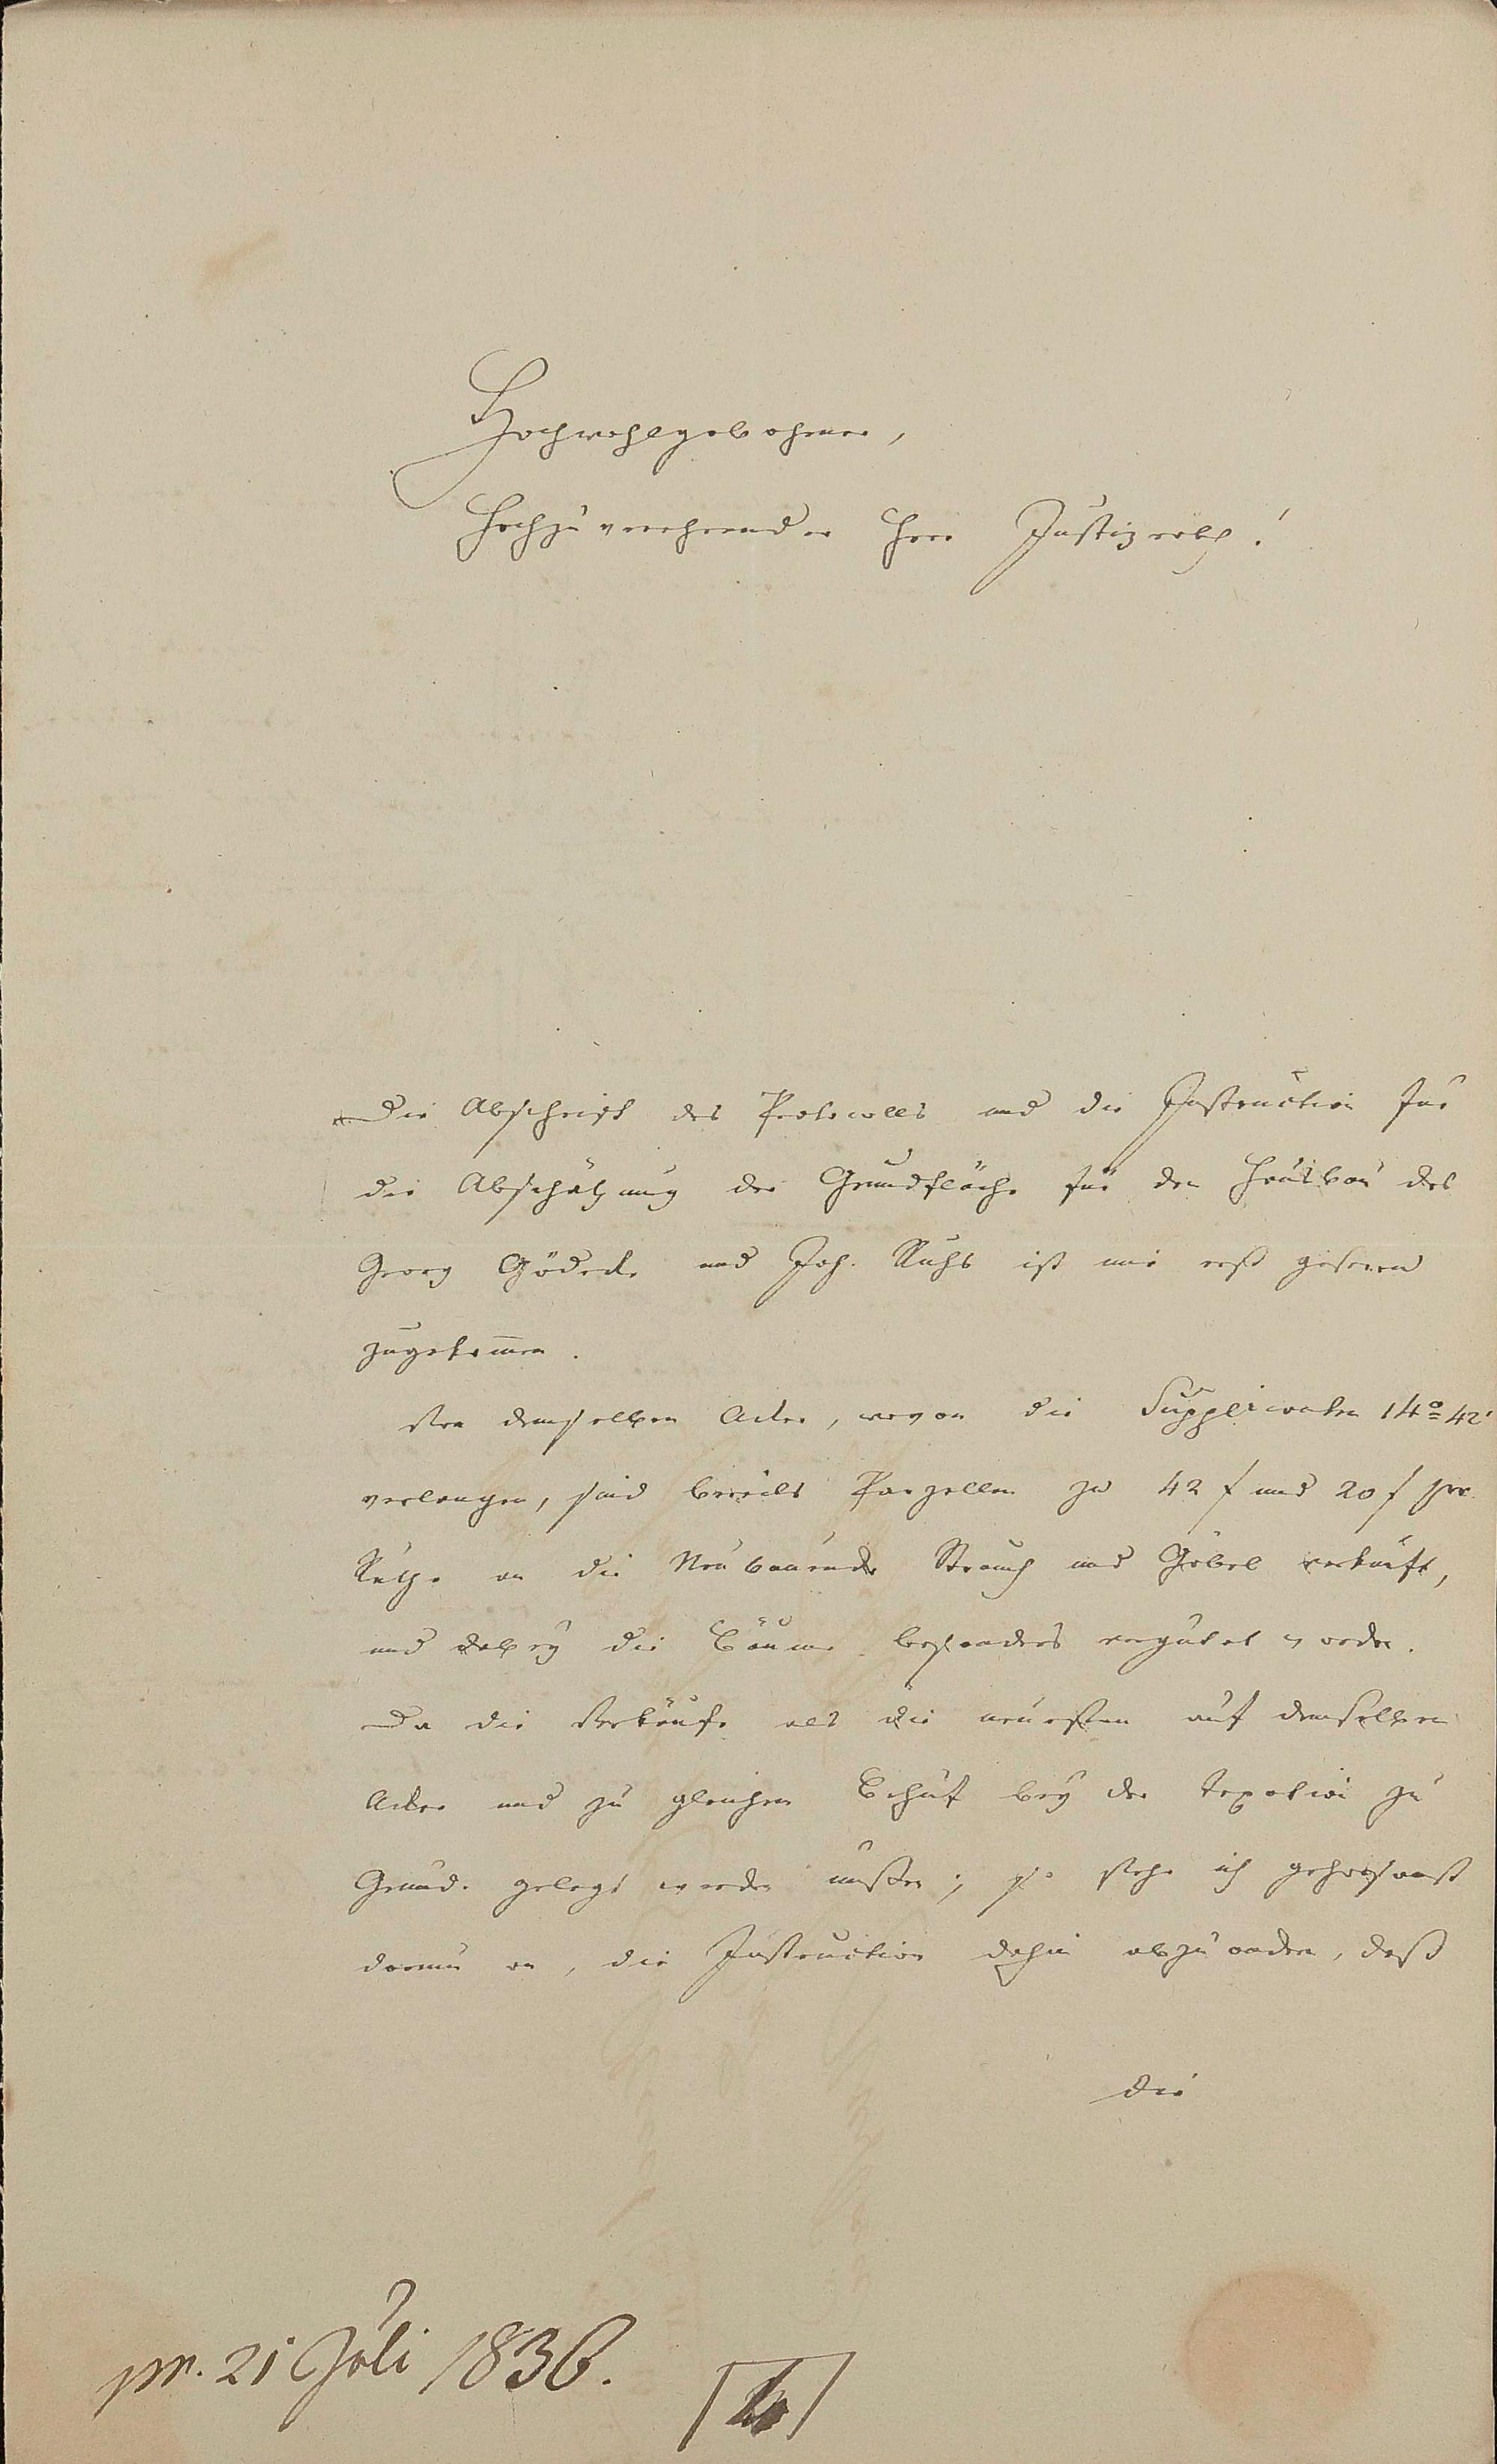 Hochwohlgebohrner,
Hochzuverehrender Herr Justizrath!
Die Abschrift des Protocolls und die Instruction für
die Abschätzung der Grundfläche für den Hausbau des
Georg Gödecke und Joh. Ruhs ist mir erst gestern
zugekom̄en.
Von demselben Acker, wovon die Supplicanten 14° 42'
verlangen, sind bereits Parzellen zu 42 f und 20 f pr.
Ruthe an die Neubauende Strauch und Göbel verkauft,
und dabey die Bäume besonders vergütet worden.
Da die Verkäufe als die neuesten auf demselben
Acker und zu gleichem Behuf bey der Taxation zu
Grunde gelegt werden müssen; so stehe ich gehorsamst
darum an, die Instruction dahin abzuändern, daß
die
pr. 21 Juli 1836.